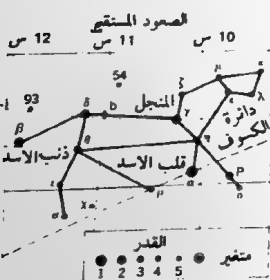 الصعود المستقيم
12 س 11 س 10 س
54
93
المنجل
دائرة
الكسوف
ذنب الاسد
قلب الاسد
β δ b ζ μ κ ε λ γ η θ α ρ ο ι σ χ
القدر
متغير
1 2 3 4 5